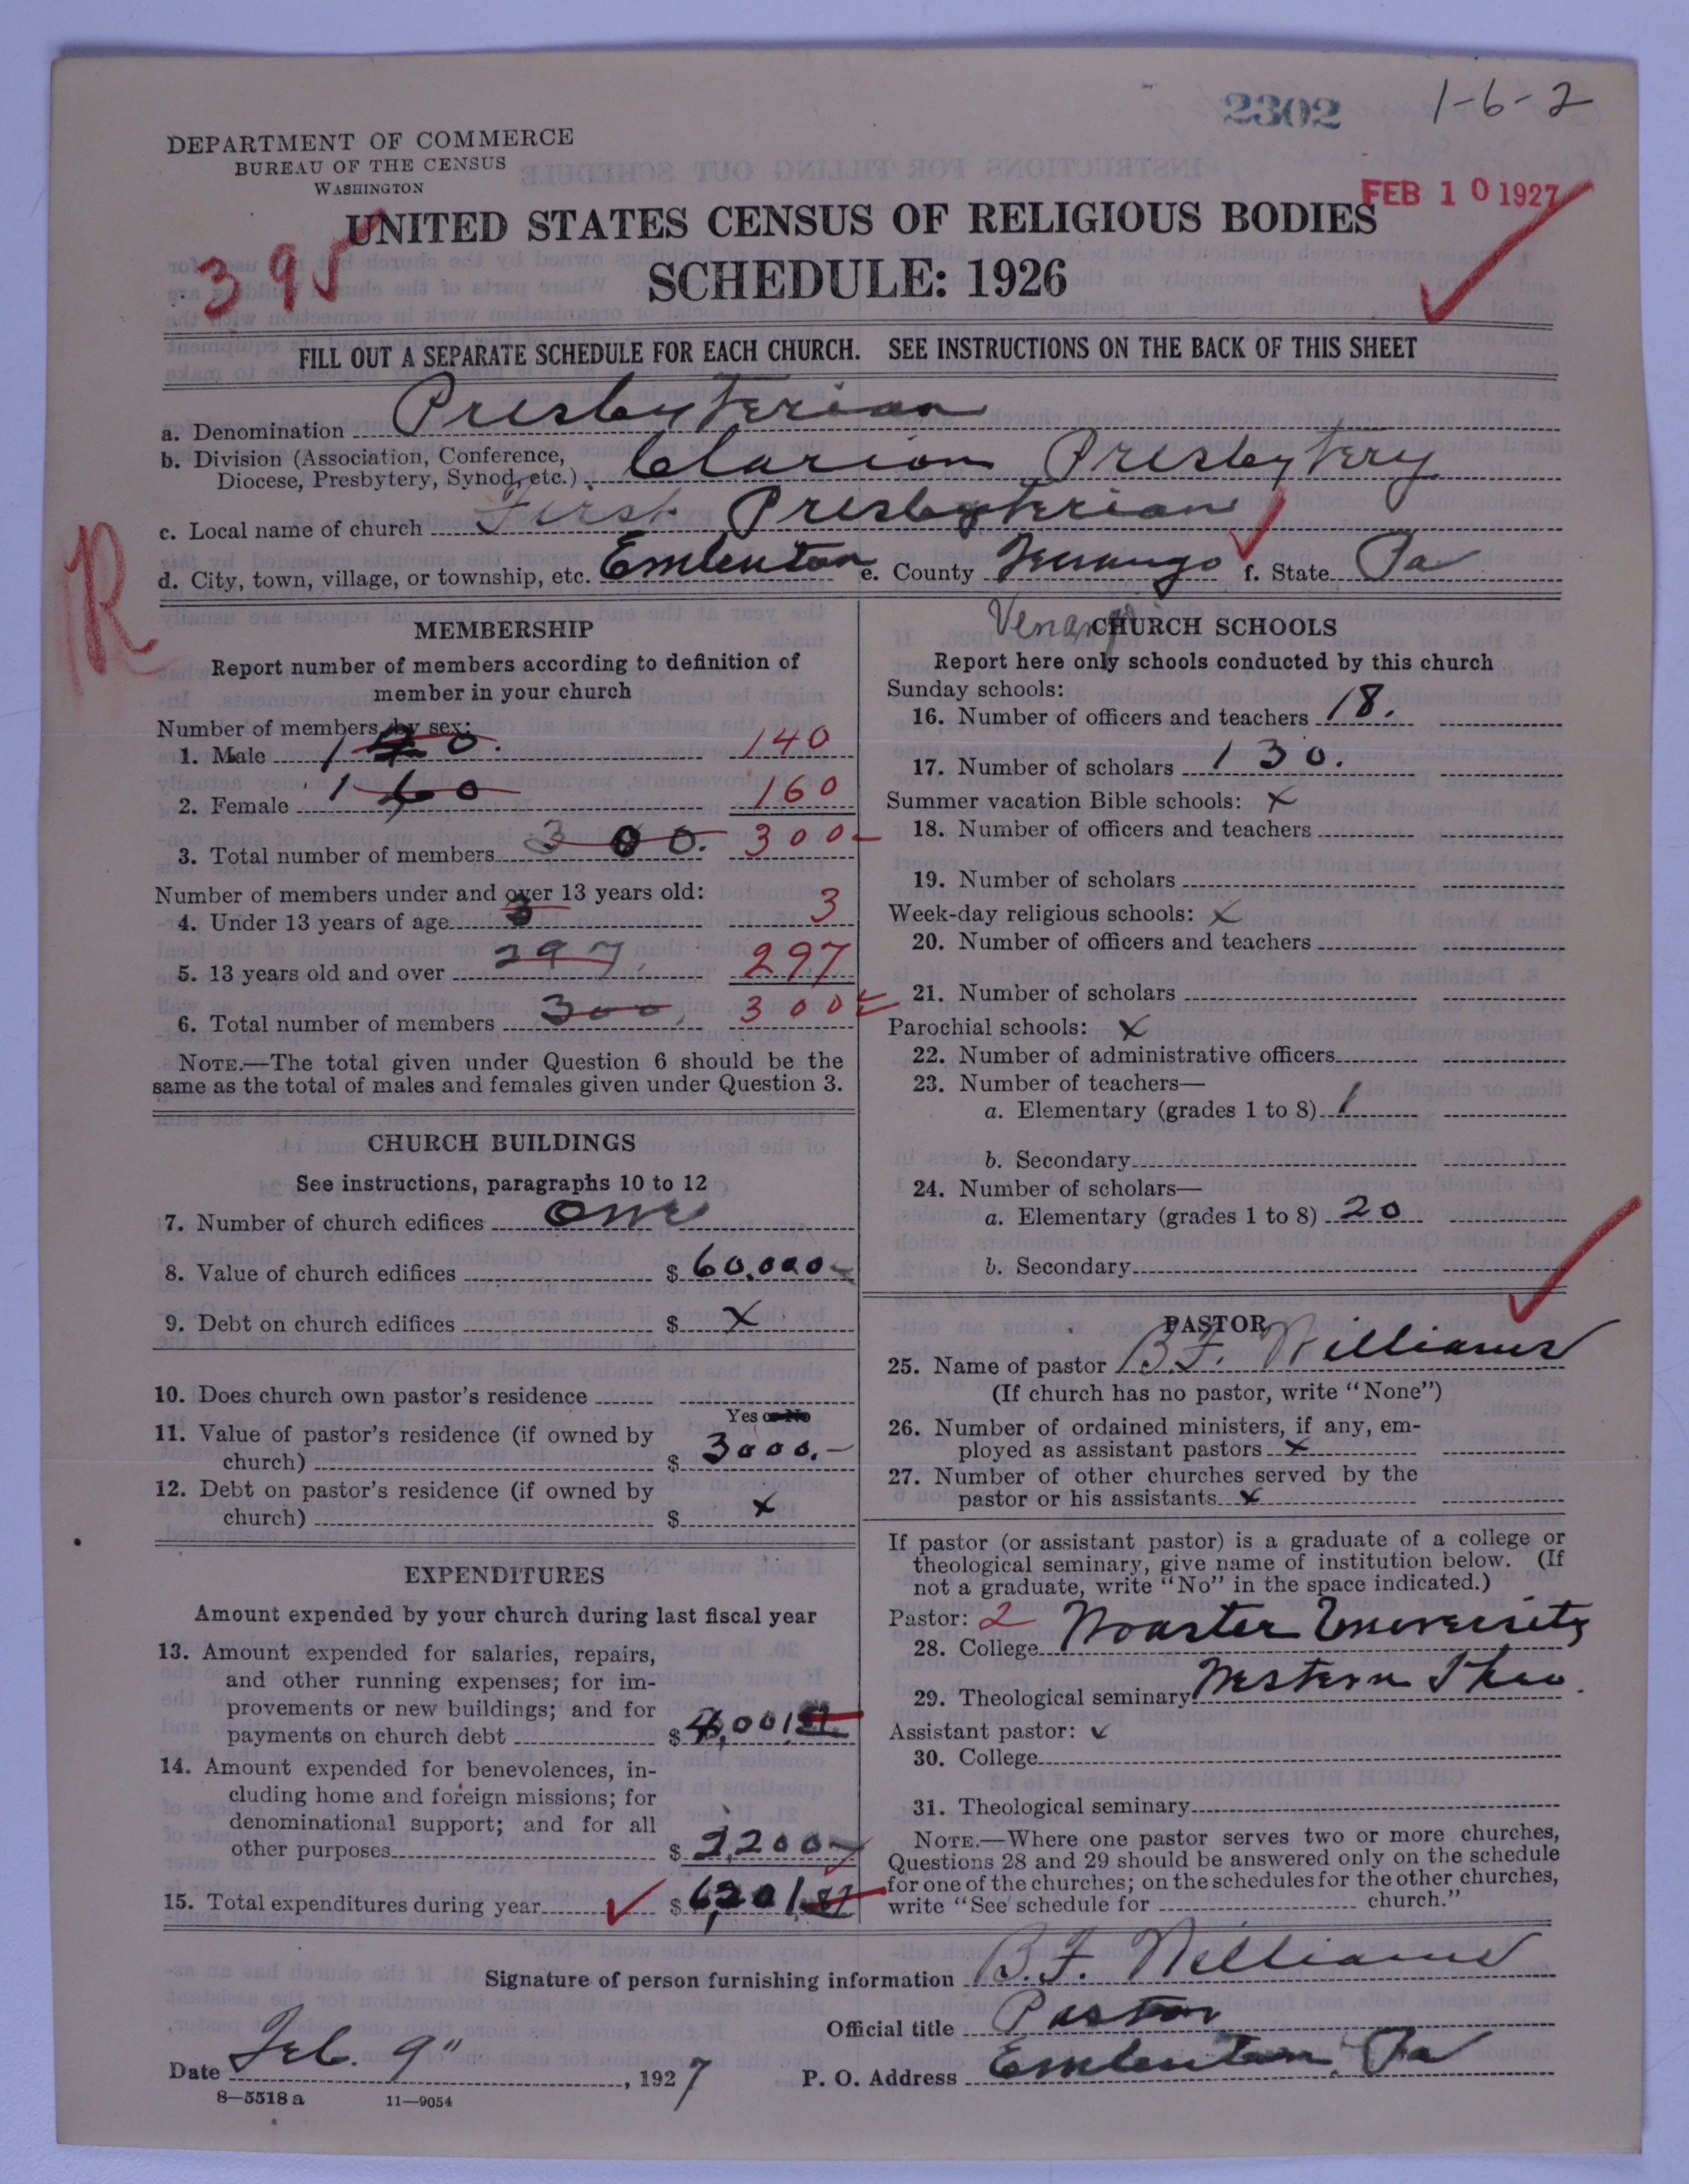 2302
1-6-2
DEPARTMENT OF COMMERCE
BUREAU OF THE CENSUS
WASHINGTON
FEB 10 1927
UNITED STATES CENSUS OF RELIGIOUS BODIES
SCHEDULE: 1926
FILL OUT A SEPARATE SCHEDULE FOR EACH CHURCH. SEE INSTRUCTIONS ON THE BACK OF THIS SHEET
a. Denomination Presbyterian
b. Division (Association, Conference, Diocese, Presbytery, Synod, etc.) Clarion Presbytery
c. Local name of church First Presbyterian
d. City, town, village, or township, etc. Emlenton e. County Venango f. State Pa
R
Venango
MEMBERSHIP
Report number of members according to definition of
member in your church
Number of members by sex:
1. Male 140. 140
2. Female 160 160
3. Total number of members 300. 300
Number of members under and over 13 years old:
4. Under 13 years of age 3 3
5. 13 years old and over 297. 297
6. Total number of members 300. 300
NOTE.—The total given under Question 6 should be the
same as the total of males and females given under Question 3.
CHURCH BUILDINGS
See instructions, paragraphs 10 to 12
7. Number of church edifices One
8. Value of church edifices $ 60,000
9. Debt on church edifices $ x
10. Does church own pastor's residence
Yes or No
11. Value of pastor's residence (if owned by
church) $ 3000.—
12. Debt on pastor's residence (if owned by
church) $ x
EXPENDITURES
Amount expended by your church during last fiscal year
13. Amount expended for salaries, repairs,
and other running expenses; for im-
provements or new buildings; and for
payments on church debt $ 4,001
14. Amount expended for benevolences, in-
cluding home and foreign missions; for
denominational support; and for all
other purposes $ 2,200
15. Total expenditures during year $ 6,201
CHURCH SCHOOLS
Report here only schools conducted by this church
Sunday schools:
16. Number of officers and teachers 18.
17. Number of scholars 130.
Summer vacation Bible schools: x
18. Number of officers and teachers
19. Number of scholars
Week-day religious schools: x
20. Number of officers and teachers
21. Number of scholars
Parochial schools: x
22. Number of administrative officers
23. Number of teachers—
a. Elementary (grades 1 to 8) 1
b. Secondary
24. Number of scholars—
a. Elementary (grades 1 to 8) 20
b. Secondary
PASTOR
25. Name of pastor B.F. Williams
(If church has no pastor, write "None")
26. Number of ordained ministers, if any, em-
ployed as assistant pastors x
27. Number of other churches served by the
pastor or his assistants x
If pastor (or assistant pastor) is a graduate of a college or
theological seminary, give name of institution below. (If
not a graduate, write "No" in the space indicated.)
Pastor: 2
28. College Wooster University
29. Theological seminary Western Theo.
Assistant pastor: x
30. College
31. Theological seminary
NOTE.—Where one pastor serves two or more churches,
Questions 28 and 29 should be answered only on the schedule
for one of the churches; on the schedules for the other churches,
write "See schedule for church."
Signature of person furnishing information B.F. Williams
Official title Pastor
Date Feb. 9", 1927 P. O. Address Emlenton, Pa
8—5518 a 11—9054